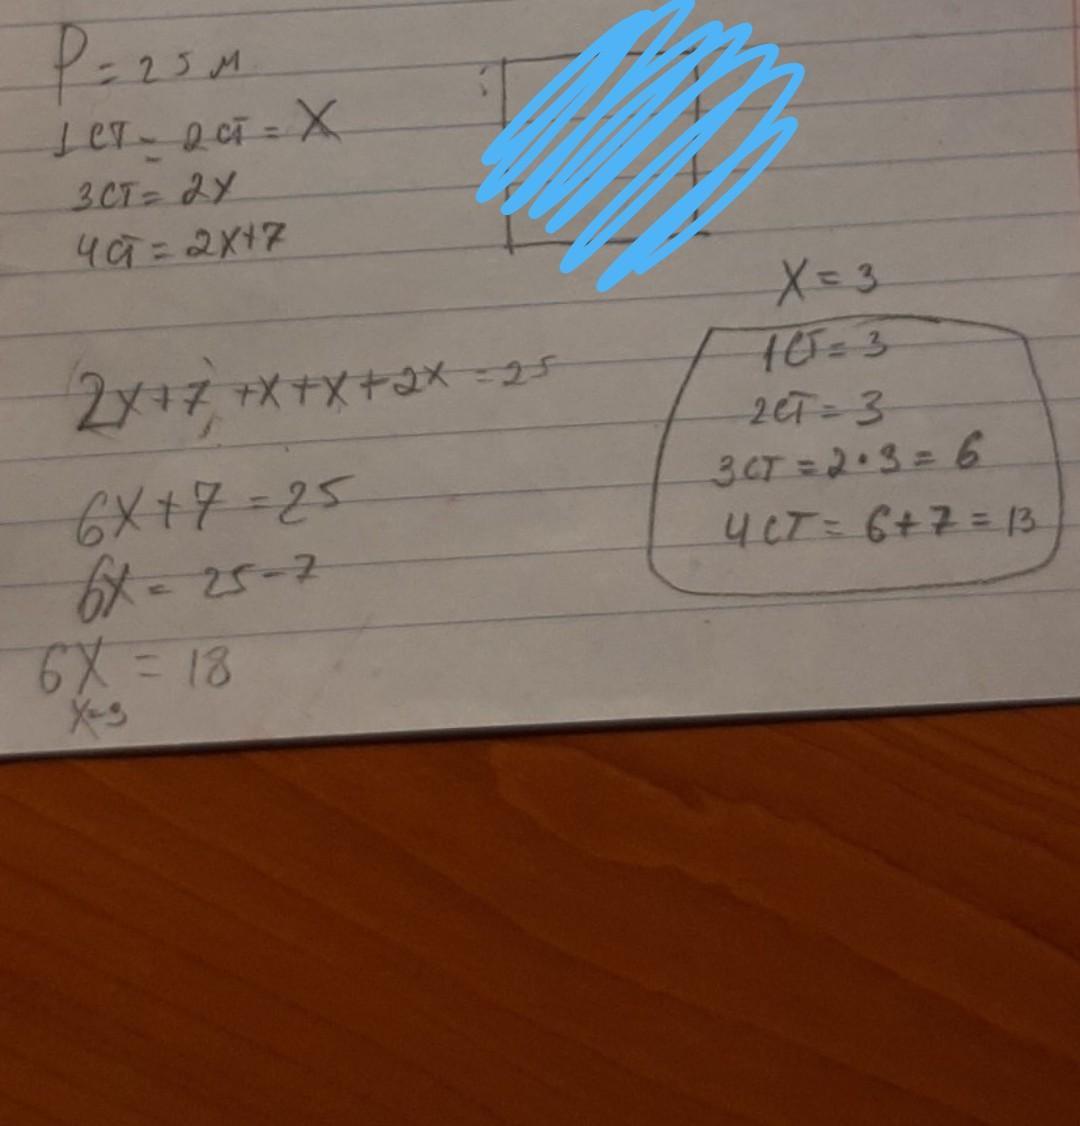 P = 25 м
1 ст = 2 ст = X
3 ст = 2X
4 ст = 2X+7
2X+7 +X+X+2X = 25
6X+7 = 25
6X = 25-7
6X = 18
X=3
X = 3
1 ст = 3
2 ст = 3
3 ст = 2•3 = 6
4 ст = 6+7 = 13